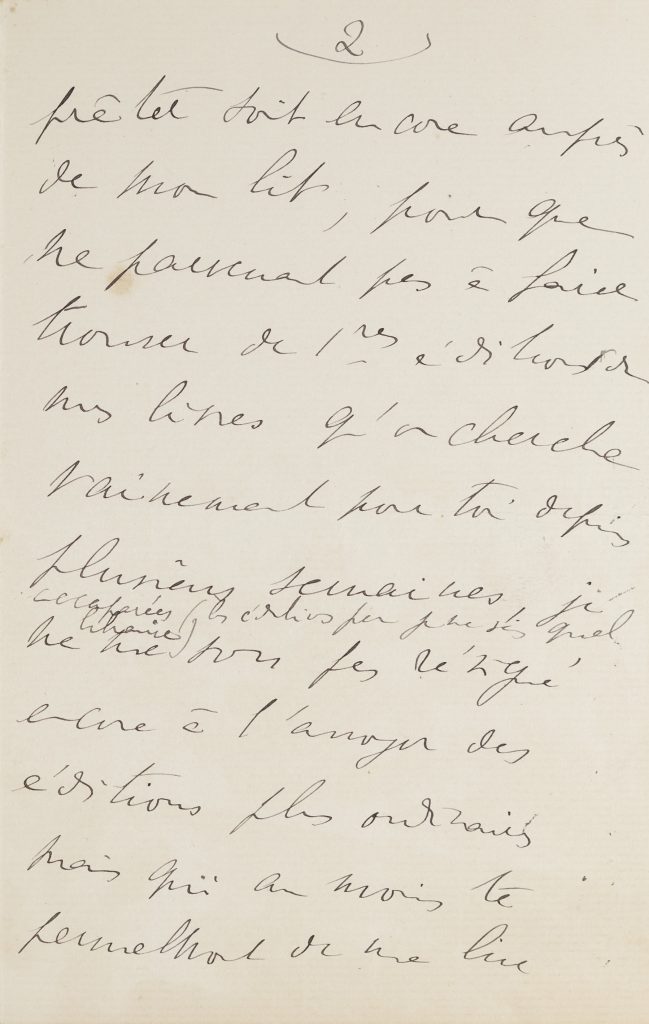 2
prêtet soit encore auprès
de mon lit, pour que
ne parvenant pas à faire
trouver de 1res éditions de
mes livres qu'on cherche
vainement pour toi depuis
plusieurs semaines je
accaparées (les éditions par je ne sais quel
libraire)
ne me sois pas résigné
encore à t'envoyer des
éditions plus ordinaires
mais qui au moins te
permettront de me lire